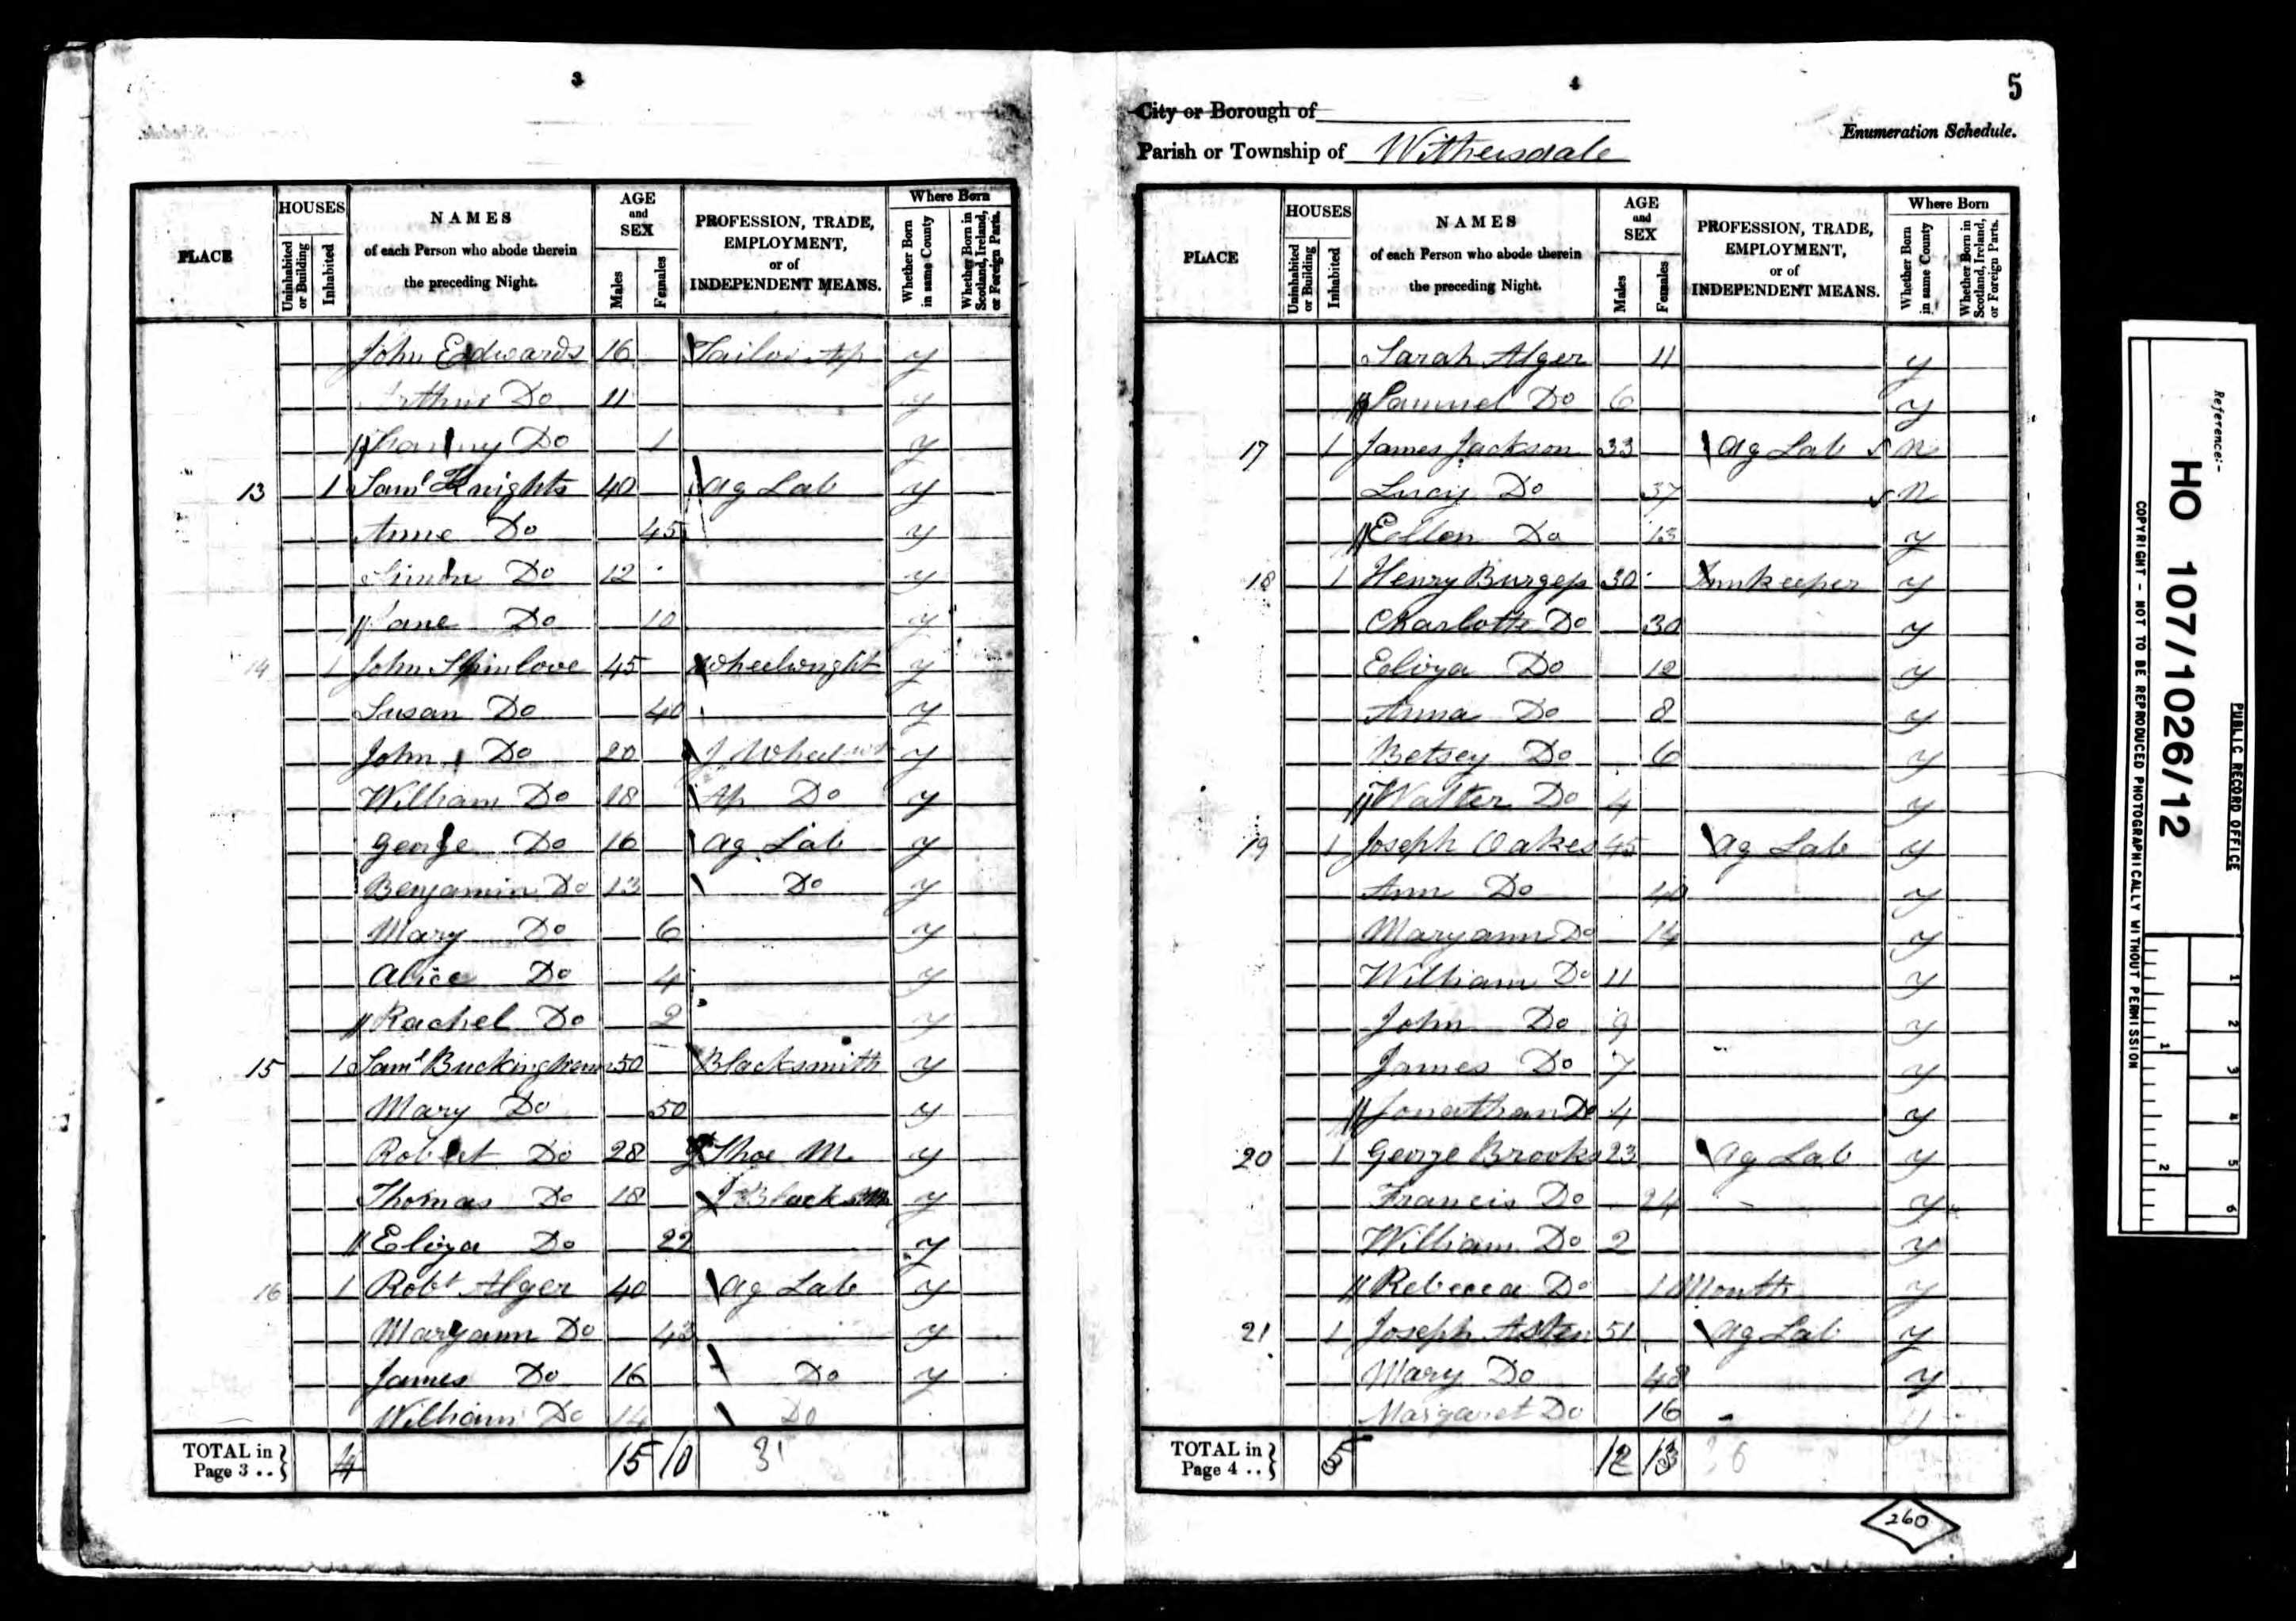 3
PLACE HOUSES Uninhabited or Building Inhabited NAMES of each Person who abode therein the preceding Night. AGE and SEX Males Females PROFESSION, TRADE, EMPLOYMENT, or of INDEPENDENT MEANS. Where Born Whether Born in same County Whether Born in Scotland, Ireland, or Foreign Parts.
John Edwards 16 Tailor Ap y
Arthur Do 11 y
Do 1 y
13 1 Saml Knights 40 Ag Lab y
Anne Do 45 y
Simon Do 12 y
Jane Do 10 y
14 1 John Spinlove 45 Wheelwright y
Susan Do 40 y
John Do 20 J Wheelwt y
William Do 18 Ap Do y
George Do 16 Ag Lab y
Benjamin Do 13 Do y
Mary Do 6 y
Alice Do 4 y
Rachel Do 2 y
15 1 Saml Buckingham 50 Blacksmith y
Mary Do 50 y
Robert Do 28 J Shoe M. y
Thomas Do 18 J Blacksm y
Eliza Do 22 y
16 1 Robt Alger 40 Ag Lab y
Maryann Do 43 y
James Do 16 Do y
William Do 14 Do
TOTAL in Page 3 .. 4 15 10 31
4
5
City or Borough of
Enumeration Schedule.
Parish or Township of Withersdale
PLACE HOUSES Uninhabited or Building Inhabited NAMES of each Person who abode therein the preceding Night. AGE and SEX Males Females PROFESSION, TRADE, EMPLOYMENT, or of INDEPENDENT MEANS. Where Born Whether Born in same County Whether Born in Scotland, Ireland, or Foreign Parts.
Sarah Alger 11 y
Samuel Do 6 y
17 1 James Jackson 33 Ag Lab n
Lucy Do 37 n
Ellen Do 13 y
18 1 Henry Burgess 30 Innkeeper y
Charlotte Do 30 y
Eliza Do 12 y
Anna Do 8 y
Betsey Do 6 y
Walter Do 4 y
19 1 Joseph Oakes 45 Ag Lab y
Ann Do 40 y
Maryann Do 14 y
William Do 11 y
John Do 9 y
James Do 7 y
Jonathan Do 4 y
20 1 George Brooks 23 Ag Lab y
Francis Do 24 y
William Do 2 y
Rebecca Do 1 Month y
21 1 Joseph Asten 51 Ag Lab y
Mary Do 48 y
Margaret Do 16 y
TOTAL in Page 4 .. 5 12 13
260
Reference:-
HO 107/1026/12
PUBLIC RECORD OFFICE
COPYRIGHT - NOT TO BE REPRODUCED PHOTOGRAPHICALLY WITHOUT PERMISSION
1 2 3 4 5 6
1 2